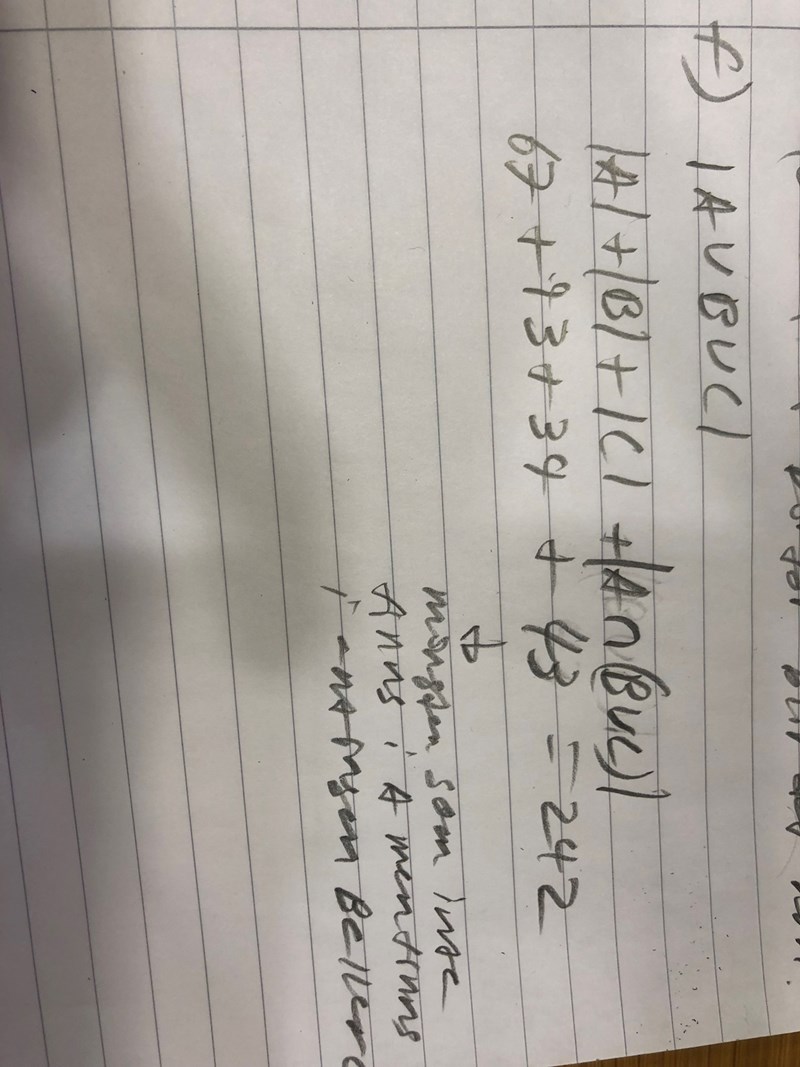 f) |A∪B∪C|
|A|+|B|+|C| +|A∩(B∪C)|
67 + 93 + 39 + 43 = 242
↓
mängden som inte
finns i A men finns
i antingen B eller C